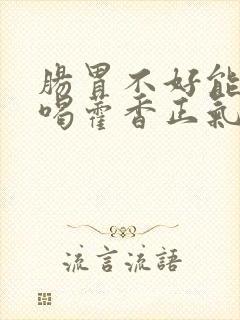 腸胃不好能
喝藿香正氣
流言流語